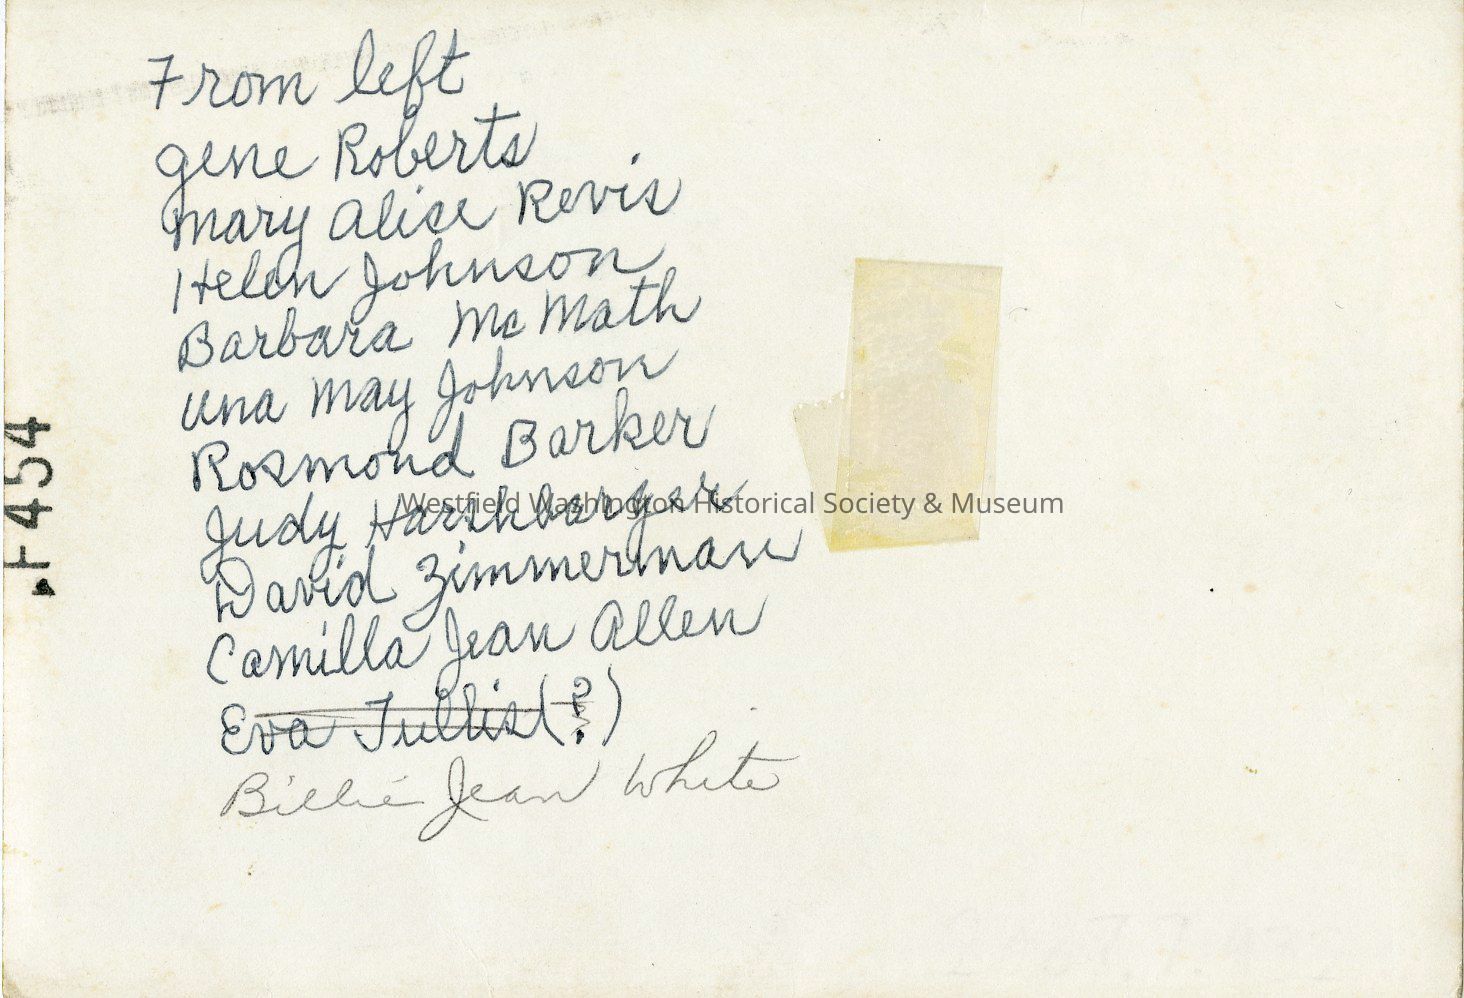 From left
gene Roberts
Mary Alice Revis
Helen Johnson
Barbara McMath
Una May Johnson
Rosmond Barker
Judy Harshbarger
David Zimmerman
Camilla Jean Allen
Eva Tullis (?)
Billie Jean White
F454
Westfield Washington Historical Society & Museum